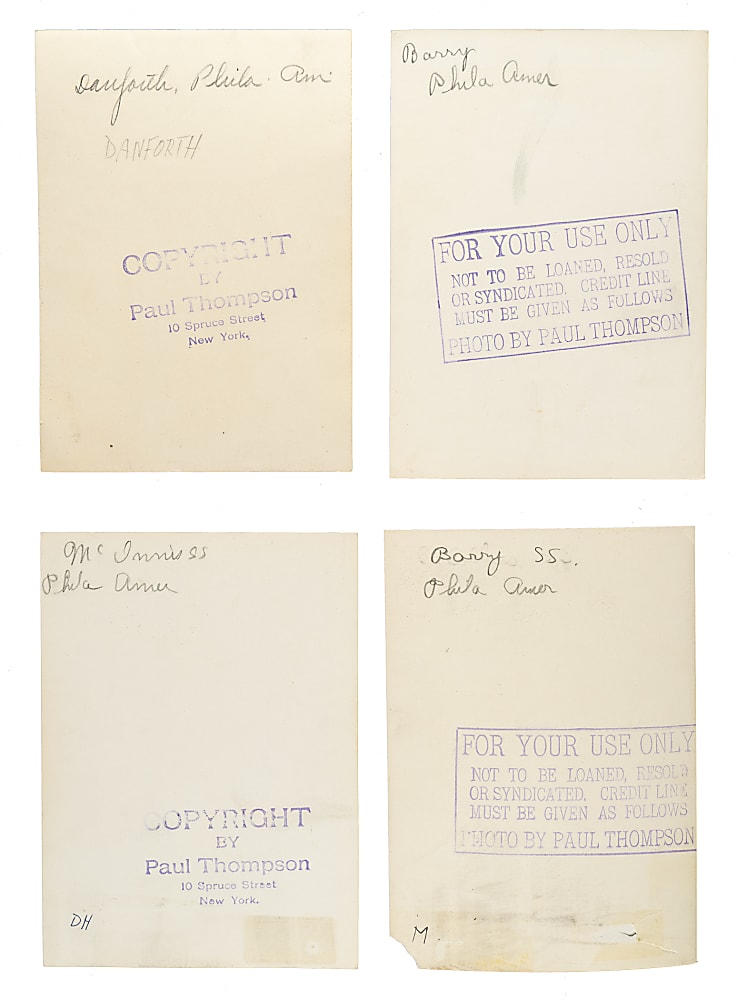 Danforth, Phila. Am.
DANFORTH
COPYRIGHT
BY
Paul Thompson
10 Spruce Street,
New York.
Barry
Phila Amer
FOR YOUR USE ONLY
NOT TO BE LOANED, RESOLD
OR SYNDICATED. CREDIT LINE
MUST BE GIVEN AS FOLLOWS
PHOTO BY PAUL THOMPSON
Mc Innis SS
Phila Amer
COPYRIGHT
BY
Paul Thompson
10 Spruce Street
New York.
DH
Barry SS.
Phila Amer
FOR YOUR USE ONLY
NOT TO BE LOANED, RESOLD
OR SYNDICATED. CREDIT LINE
MUST BE GIVEN AS FOLLOWS
PHOTO BY PAUL THOMPSON
M